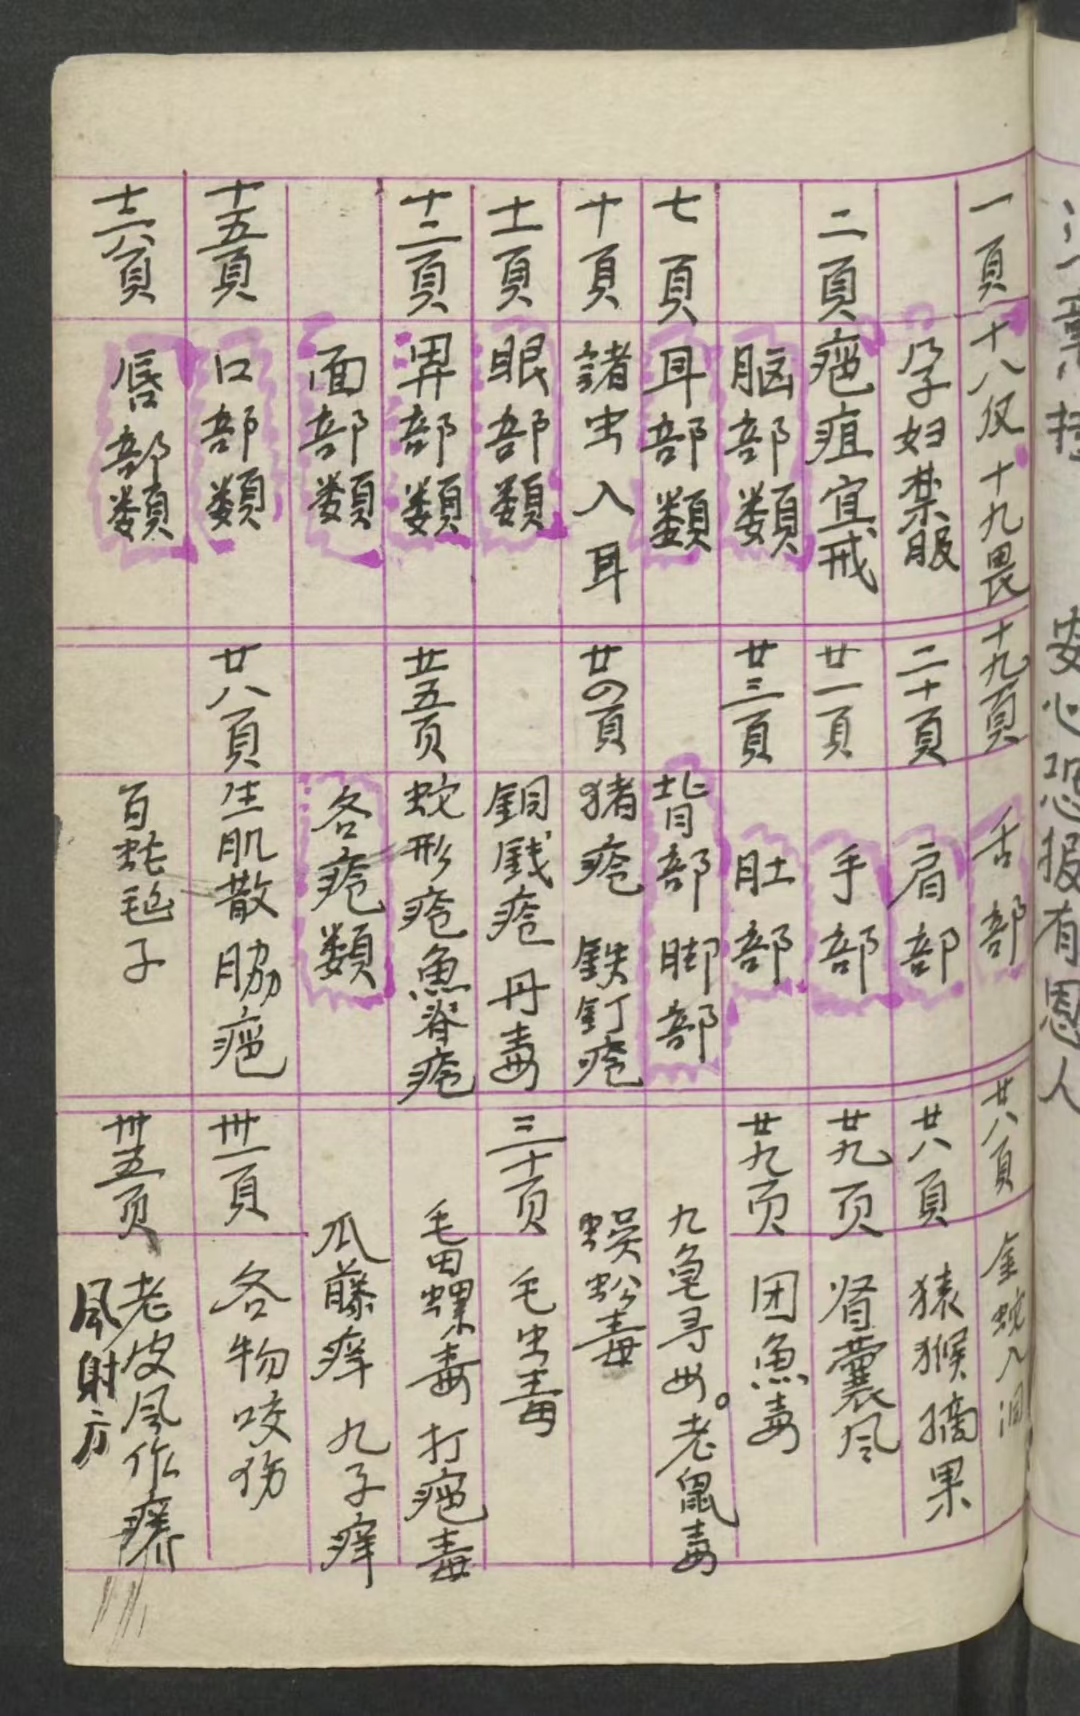 一頁 十八反 十九畏
孕妇禁服
二頁 疤疽宜戒
脑部類
七頁 耳部類
十頁 諸虫入耳
十一頁 眼部類
十二頁 鼻部類
面部類
十五頁 口部類
十六頁 唇部類
十九頁 舌部
二十頁 肩部
廿一頁 手部
廿三頁 肚部
背部 脚部
廿四頁 猪疮 鉄钉疮
銅銭疮 丹毒
廿五页 蛇形疮 魚脊疮
各疮類
廿八頁 生肌散 脇疤
百蛇毡子
廿八頁 金蛇入洞
廿八頁 猿猴摘果
廿九页 肾囊风
廿九页 团魚毒
九龟寻母。老鼠毒
蜈蚣毒
三十页 毛虫毒
毛田螺毒 打疤毒
瓜藤痒 九子痒
卅一頁 各物咬伤
卅五页 老皮风作癢
风射方
安心恐报有恩人